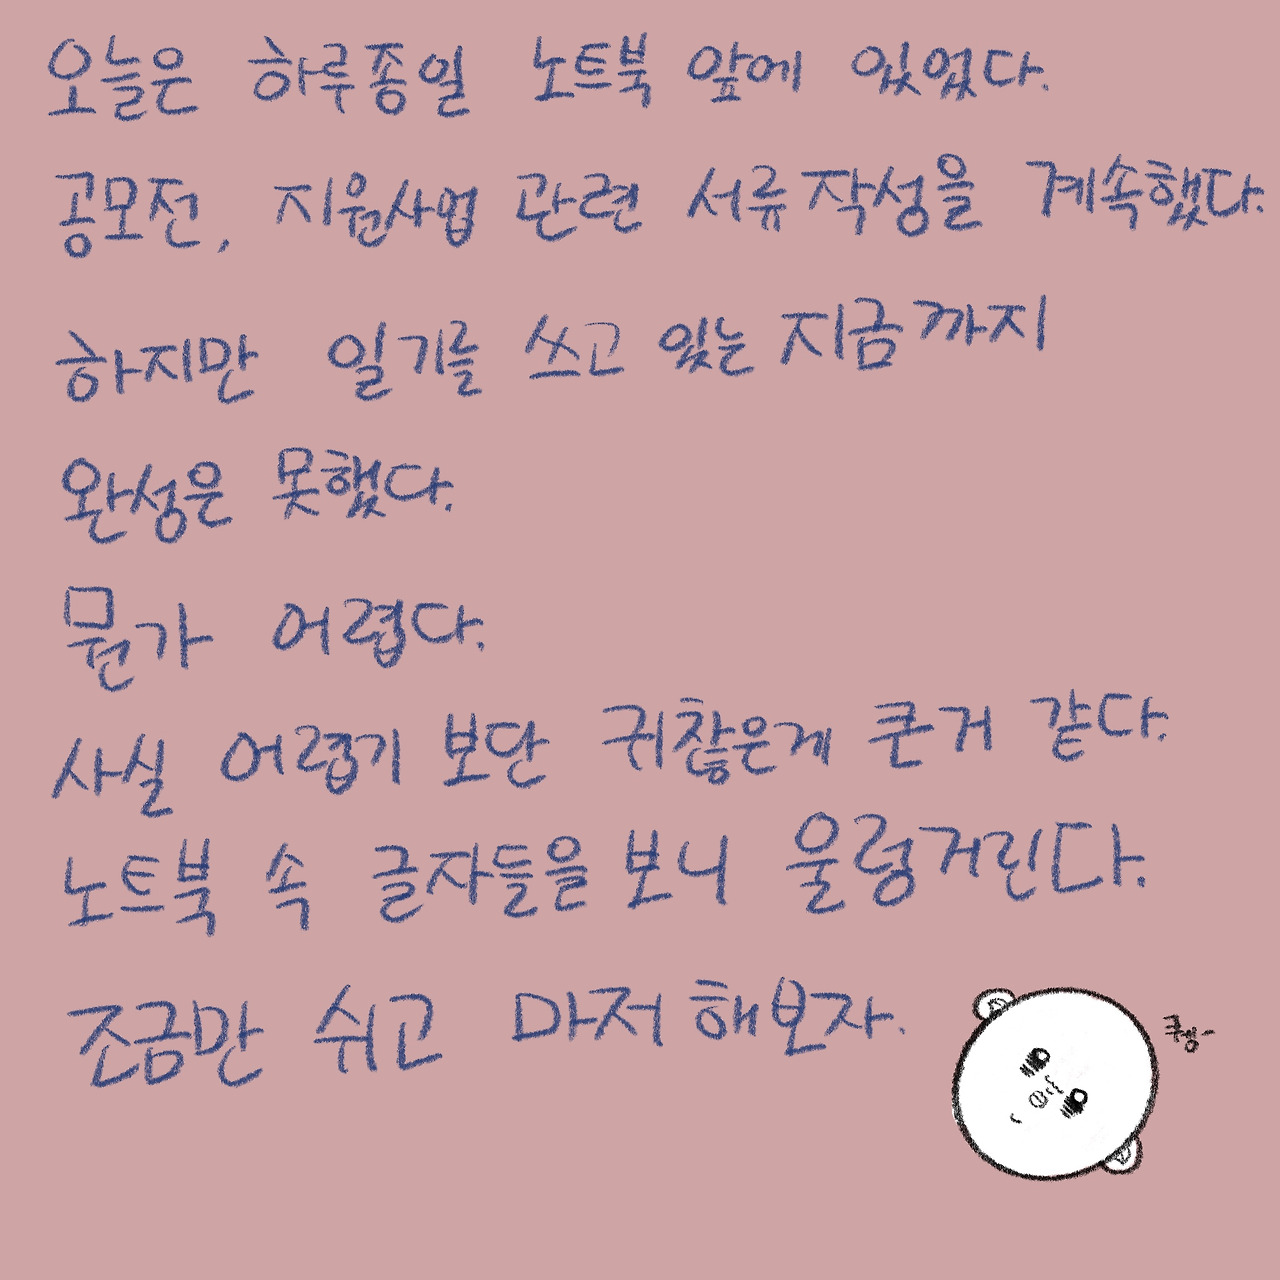 오늘은 하루종일 노트북 앞에 있었다.
공모전, 지원사업 관련 서류작성을 계속했다.
하지만 일기를 쓰고 있는 지금까지
완성은 못했다.
뭔가 어렵다.
사실 어렵기 보단 귀찮은게 큰거 같다.
노트북 속 글자들을 보니 울렁거린다.
조금만 쉬고 마저 해보자.
쿠엥-